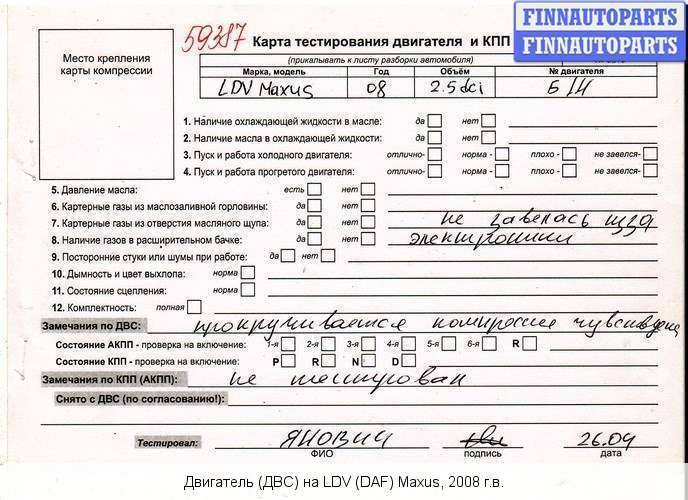 59387
Карта тестирования двигателя и КПП
FINNAUTOPARTS
FINNAUTOPARTS
Место крепления
карты компрессии
(прикалывать к листу разборки автомобиля)
Марка, модель Год Объём № двигателя
LDV Maxus 08 2.5 dci Б/Н
1. Наличие охлаждающей жидкости в масле: да нет
2. Наличие масла в охлаждающей жидкости: да нет
3. Пуск и работа холодного двигателя: отлично- норма - плохо - не завелся-
4. Пуск и работа прогретого двигателя: отлично- норма - плохо - не завелся-
5. Давление масла: есть нет
6. Картерные газы из маслозаливной горловины: да нет
7. Картерные газы из отверстия масляного щупа: да нет не завелась из за
8. Наличие газов в расширительном бачке: да нет электроники
9. Посторонние стуки или шумы при работе: да нет
10. Дымность и цвет выхлопа: норма
11. Состояние сцепления: норма
12. Комплектность: полная
Замечания по ДВС: прокручивается компрессия
Состояние АКПП - проверка на включение: 1-я 2-я 3-я 4-я 5-я 6-я R
Состояние КПП - проверка на включение: P R N D
Замечания по КПП (АКПП): не тестирован
Снято с ДВС (по согласованию!):
Тестировал: ЯНОВИЧ 26.04
ФИО подпись дата
Двигатель (ДВС) на LDV (DAF) Maxus, 2008 г.в.